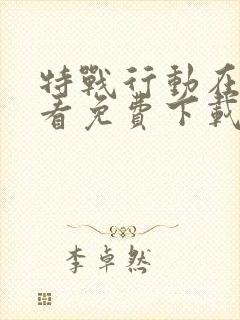 特戰行動在
看免費下載
李卓然